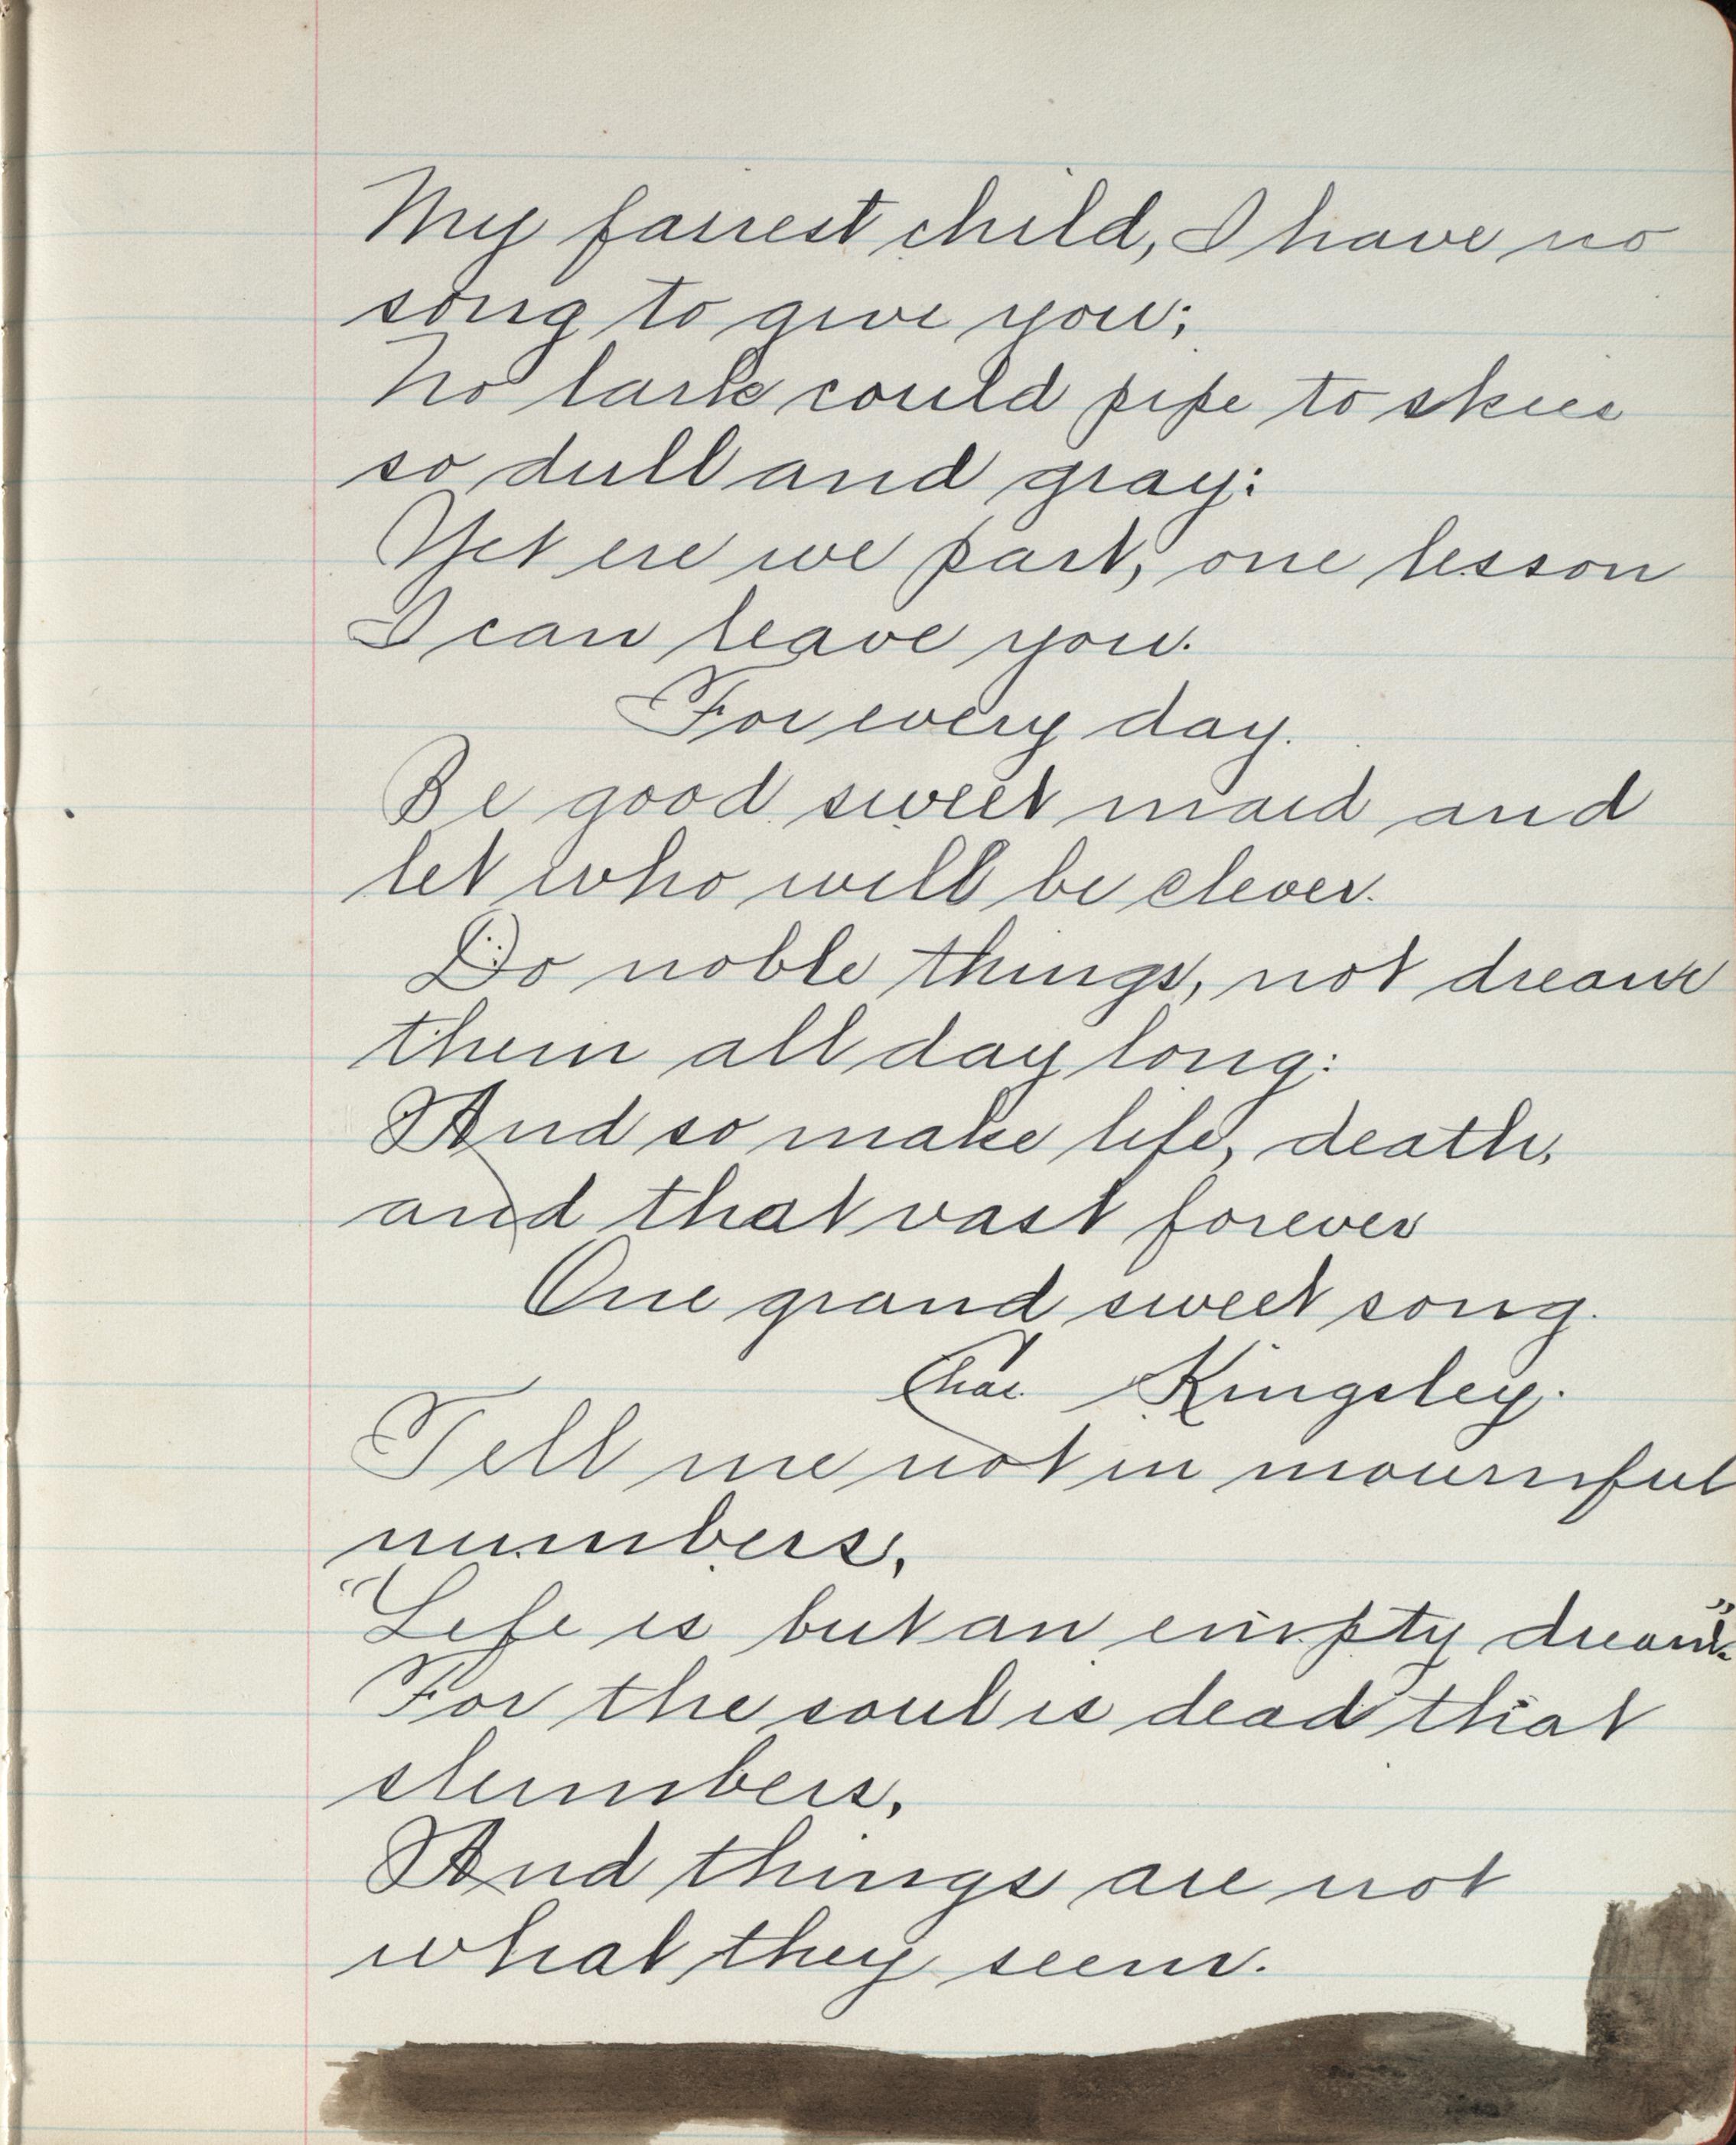 My fairest child, I have no
song to give you;
No lark could pipe to skies
so dull and gray:
Yet ere we part, one lesson
I can leave you.
For every day.
Be good sweet maid and
let who will be clever.
Do noble things, not dream
them all day long:
And so make life, death,
and that vast forever
One grand sweet song.
Chas. Kingsley.
Tell me not in mournful
numbers,
"Life is but an empty dream".
For the soul is dead that
slumbers,
And things are not
what they seem.